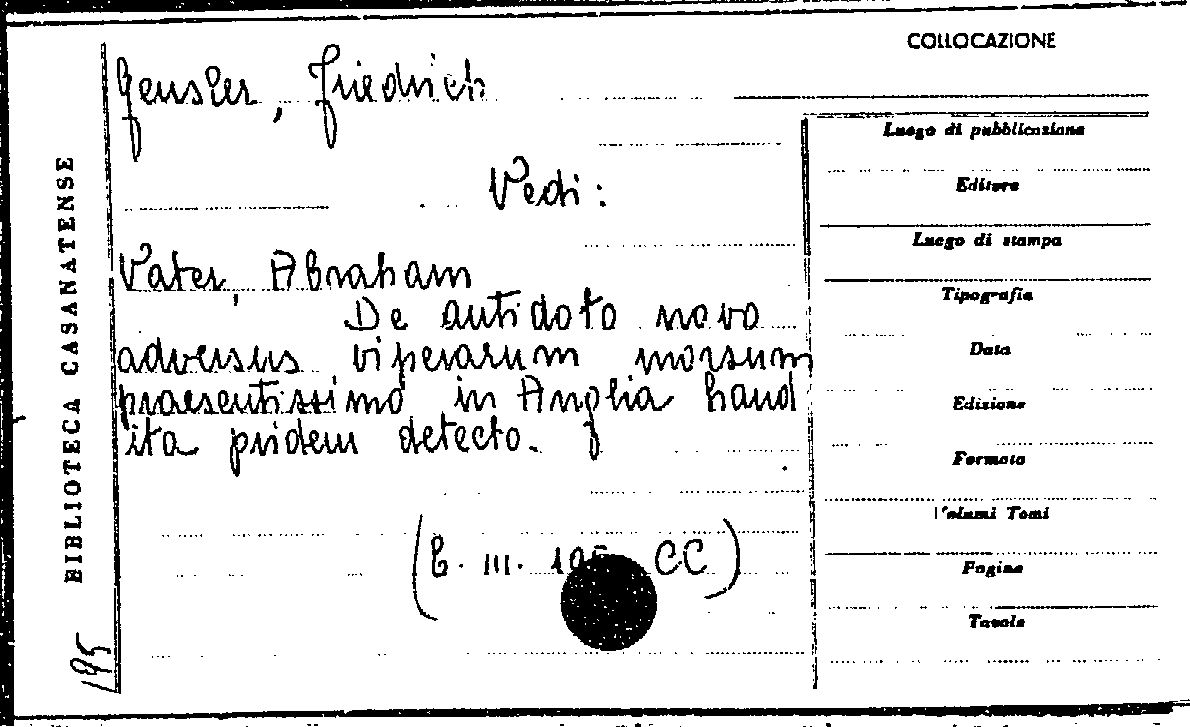 COLLOCAZIONE
Gensler, Friedrich
Vedi:
Vater, Abraham
De antidoto novo
adversus viperarum morsum
praesentissimo in Anglia haud
ita pridem detecto.
III. CC)
BIBLIOTECA CASANATENSE
195
Luogo di pubblicazione
Editore
Luogo di stampa
Tipografia
Data
Edizione
Formato
Volumi Tomi
Pagine
Tavole